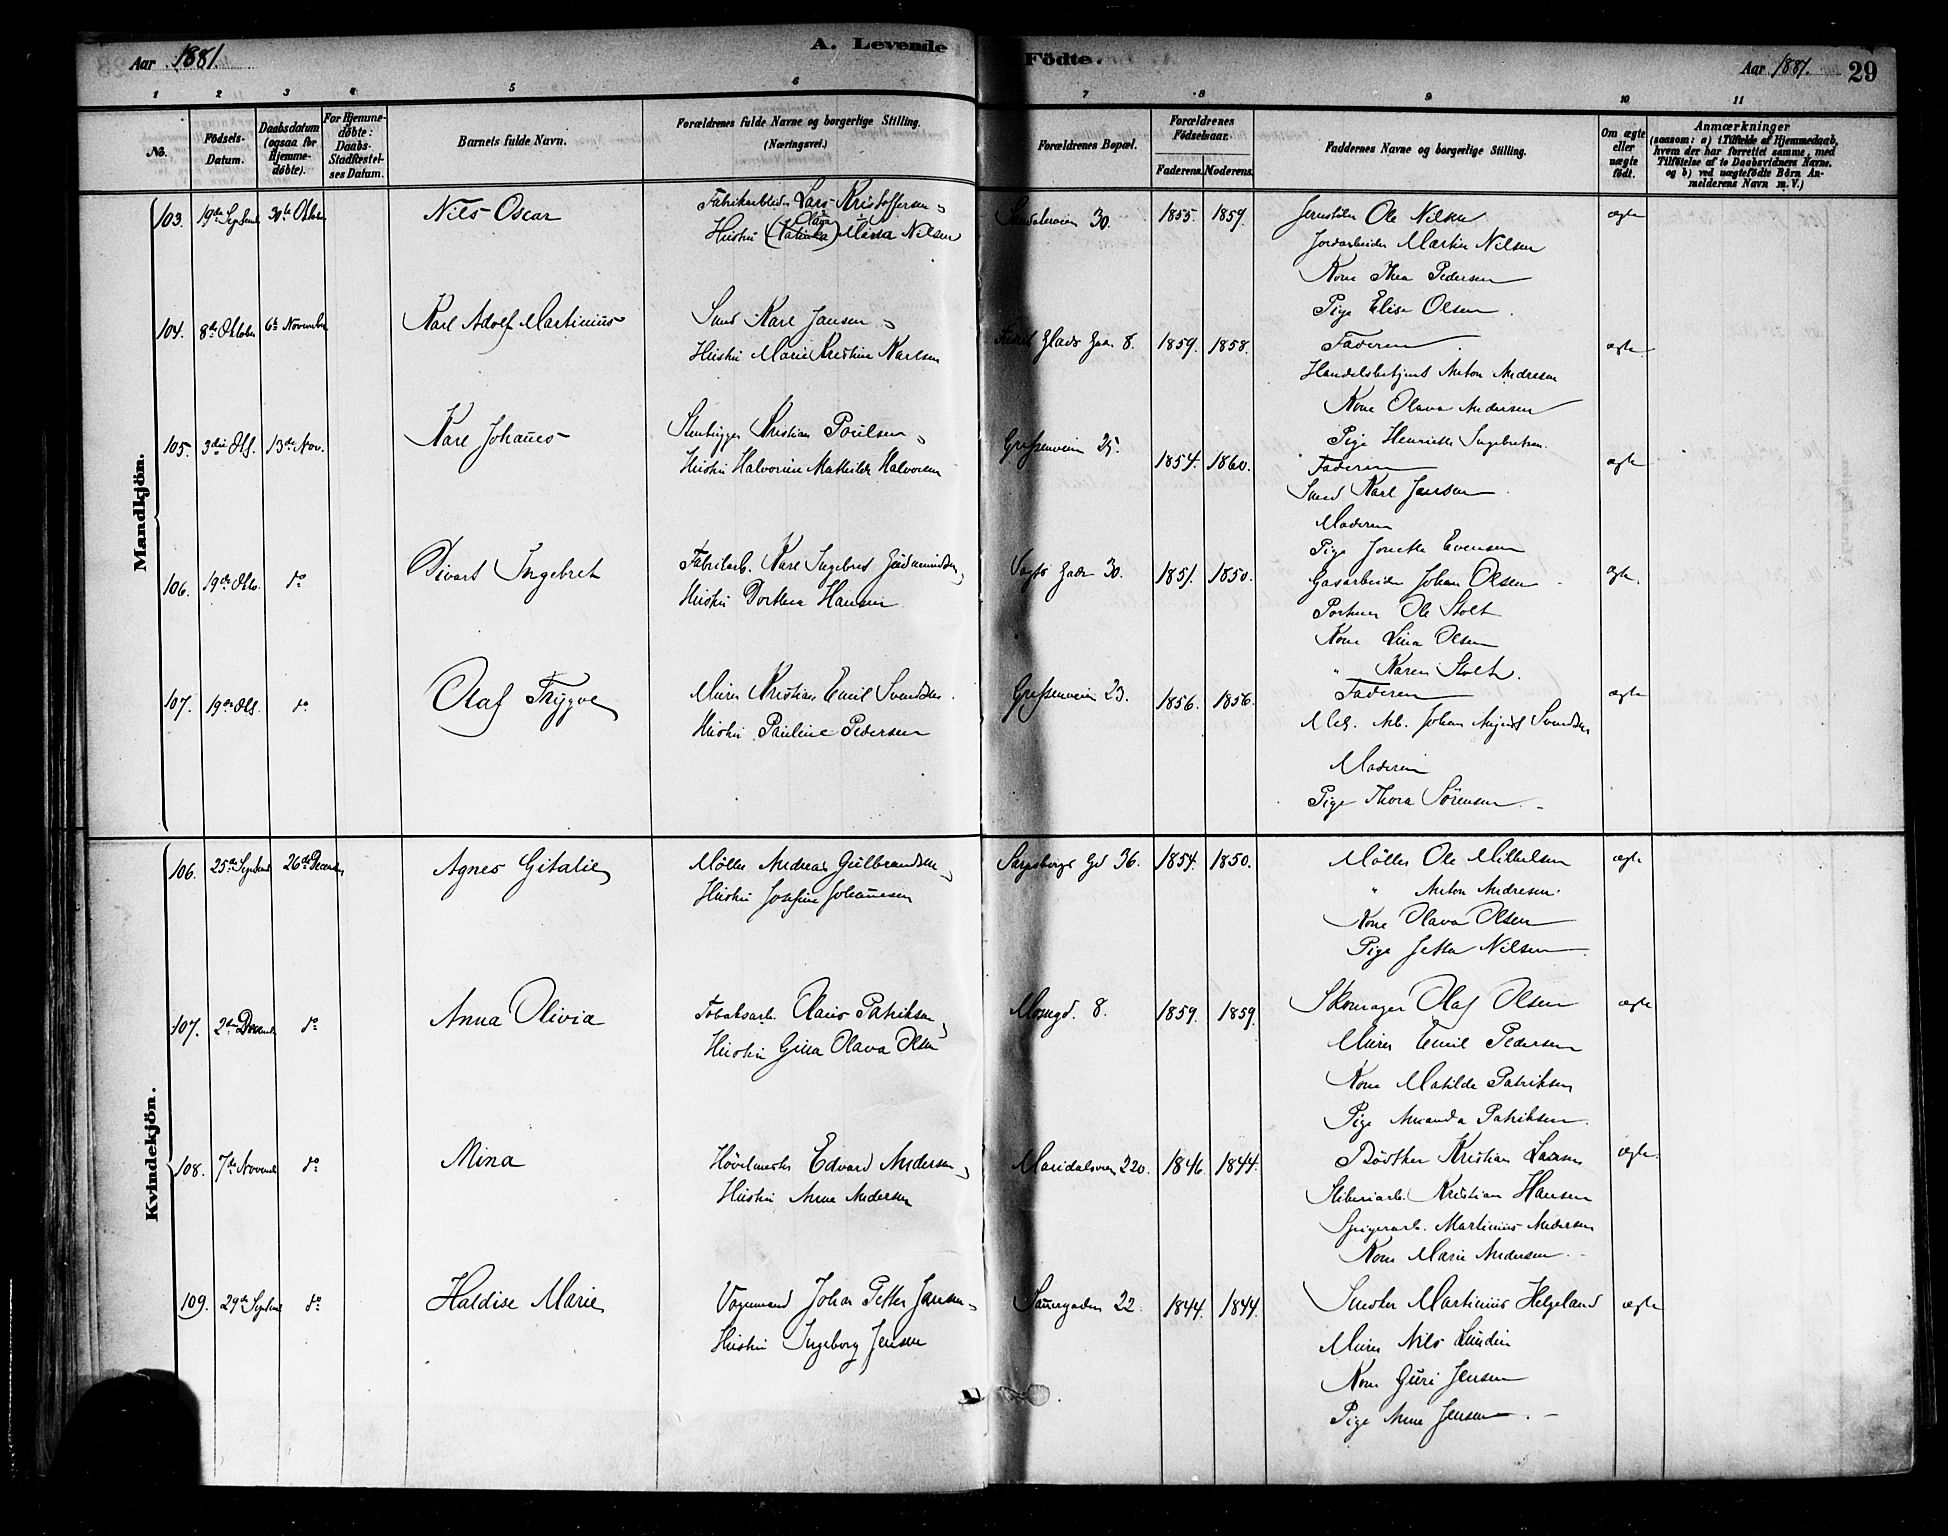 Aar 1881.
A. Levende
Födte.
Aar 1881.
29
1 2 3 4 5 6 7 8 9 10 11
No.
Födsels-Datum.
Daabsdatum (ogsaa for Hjemme-döbte).
For Hjemme-döbte: Daabs-Stadfæstel-ses Datum.
Barnets fulde Navn.
Forældrenes fulde Navne og borgerlige Stilling. (Næringsvei.)
Forældrenes Bopæl.
Forældrenes Födselsaar.
Faderens. Moderens.
Faddernes Navne og borgerlige Stilling.
Om ægte eller uægte födt.
Anmærkninger
(saasom: a) i Tilfælde af Hjemmedaab,
hvem der har forrettet samme, med
Tilföielse af to Daabsvidners Navne,
og b) ved uægtefödte Börn An-
melderens Navn m. V.)
Mandkjön.
103. 19de Septemb 30te Oktober Nils Oscar Fabrikarbeider Lars Kristoffersen 30. 1855. 1859. Ole Nilsen ægte
Hustru (Katinka) Olava Maria Nilsen
Jordarbeider Martin Nilsen
Kone Thea Pedersen
Pige Elise Olsen
104. 8de Oktober 6te November Karl Adolf Martinius Smed Karl Jansen
Hustru Marie Kristine Karlsen
Glads Gade 8. 1859. 1858. Faderen ægte
Handelsbetjent Anton Andresen
Kone Olava Andersen
Pige Henriette Ingebretsen
105. 3die Okt. 13de Nov. Karl Johannes Stenhugger Kristian Poulsen
Hustru Halvorine Mathilde Halvorsen
Grefsenveien 25. 1854. 1860. Faderen ægte
Smed Karl Jansen
Moderen
Pige Jonette Evensen
106. 19de Okto. do Sivart Ingebret Fabrikarb. Karl Ingebret Gudmundsen
Hustru Dorthea Hansen
Vogts Gade 30. 1851. 1850. Gasarbeider Johan Olsen ægte.
Portner Ole Stolt
Kone Lina Olsen
" Karen Stolt.
107. 19de Okt. do Olaf Trygve Murer Kristian Emil Svendsen.
Hustru Pauline Pedersen
Grefsenveien 23. 1856. 1856. Faderen ægte
Mek. Arb. Johan August Svendsen
Moderen
Pige Thora Sörensen
Kvindekjön.
106. 25de Septemb 26de December Agnes Gitalie Möller Andreas Gulbrandsen
Hustru Josefine Johannesen
Sarpsborg Gd 36. 1854. 1850. Möller Ole Mikkelsen ægte
" Anton Andresen.
Kone Olava Olsen
Pige Jetta Nilsen
107. 2den Decemb do Anna Olivia Tobaksarb. Olaus Patriksen
Hustru Gina Olava Olsen
Mosegd. 8. 1859. 1859. Skomager Olaf Olsen ægte
Murer Emil Pedersen
Kone Matilde Patriksen
Pige Amanda Patriksen.
108. 7de Novemb do Mina Edvard Andersen
Hustru Anne Andersen
Maridalsveien 220. 1846. 1844. Bödker Kristian Larsen ægte.
Stiberiarb. Kristian Hansen
Spigerarb. Martinius Andersen
Kone Marie Andersen
109. 29de Septemb do Haldise Marie Vognmand Johan Petter Jansen
Hustru Ingeborg Jensen
Sannergaden 22. 1844. 1844. Smed Martinius Helgeland ægte
Murer Nils Lundin
Kone Guri Jensen
Pige Anne Jensen